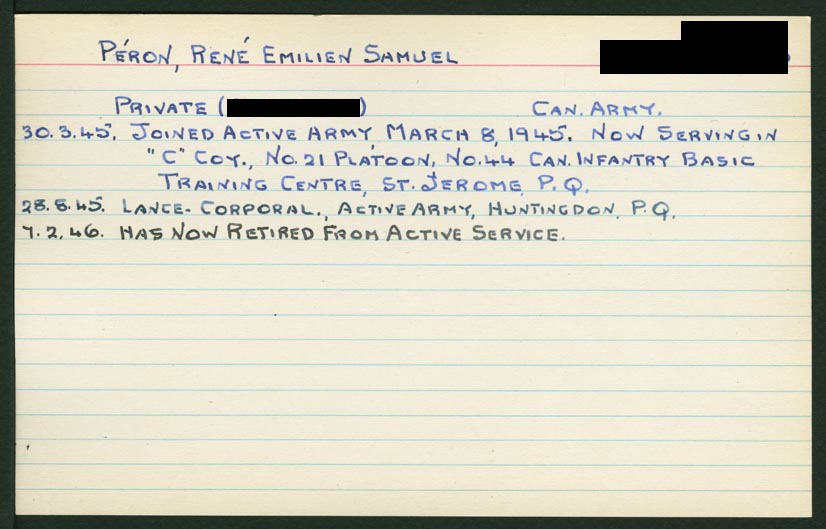 PÉRON, RENÉ EMILIEN SAMUEL
PRIVATE ( ) CAN. ARMY.
30.3.45. JOINED ACTIVE ARMY, MARCH 8, 1945. NOW SERVING IN
"C" COY., NO. 21 PLATOON, NO. 44 CAN. INFANTRY BASIC
TRAINING CENTRE, ST. JEROME, P.Q.
28.8.45. LANCE-CORPORAL., ACTIVE ARMY, HUNTINGDON, P.Q.
7.2.46. HAS NOW RETIRED FROM ACTIVE SERVICE.